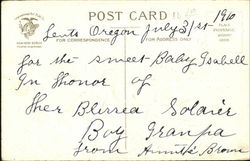 POST CARD
FOR CORRESPONDENCE
FOR ADDRESS ONLY
Lents Oregon July 31st 1910
for the sweet Baby Isabell
In Honor of
Her Blessed Soldier
Boy Granpa
From Auntie Brown